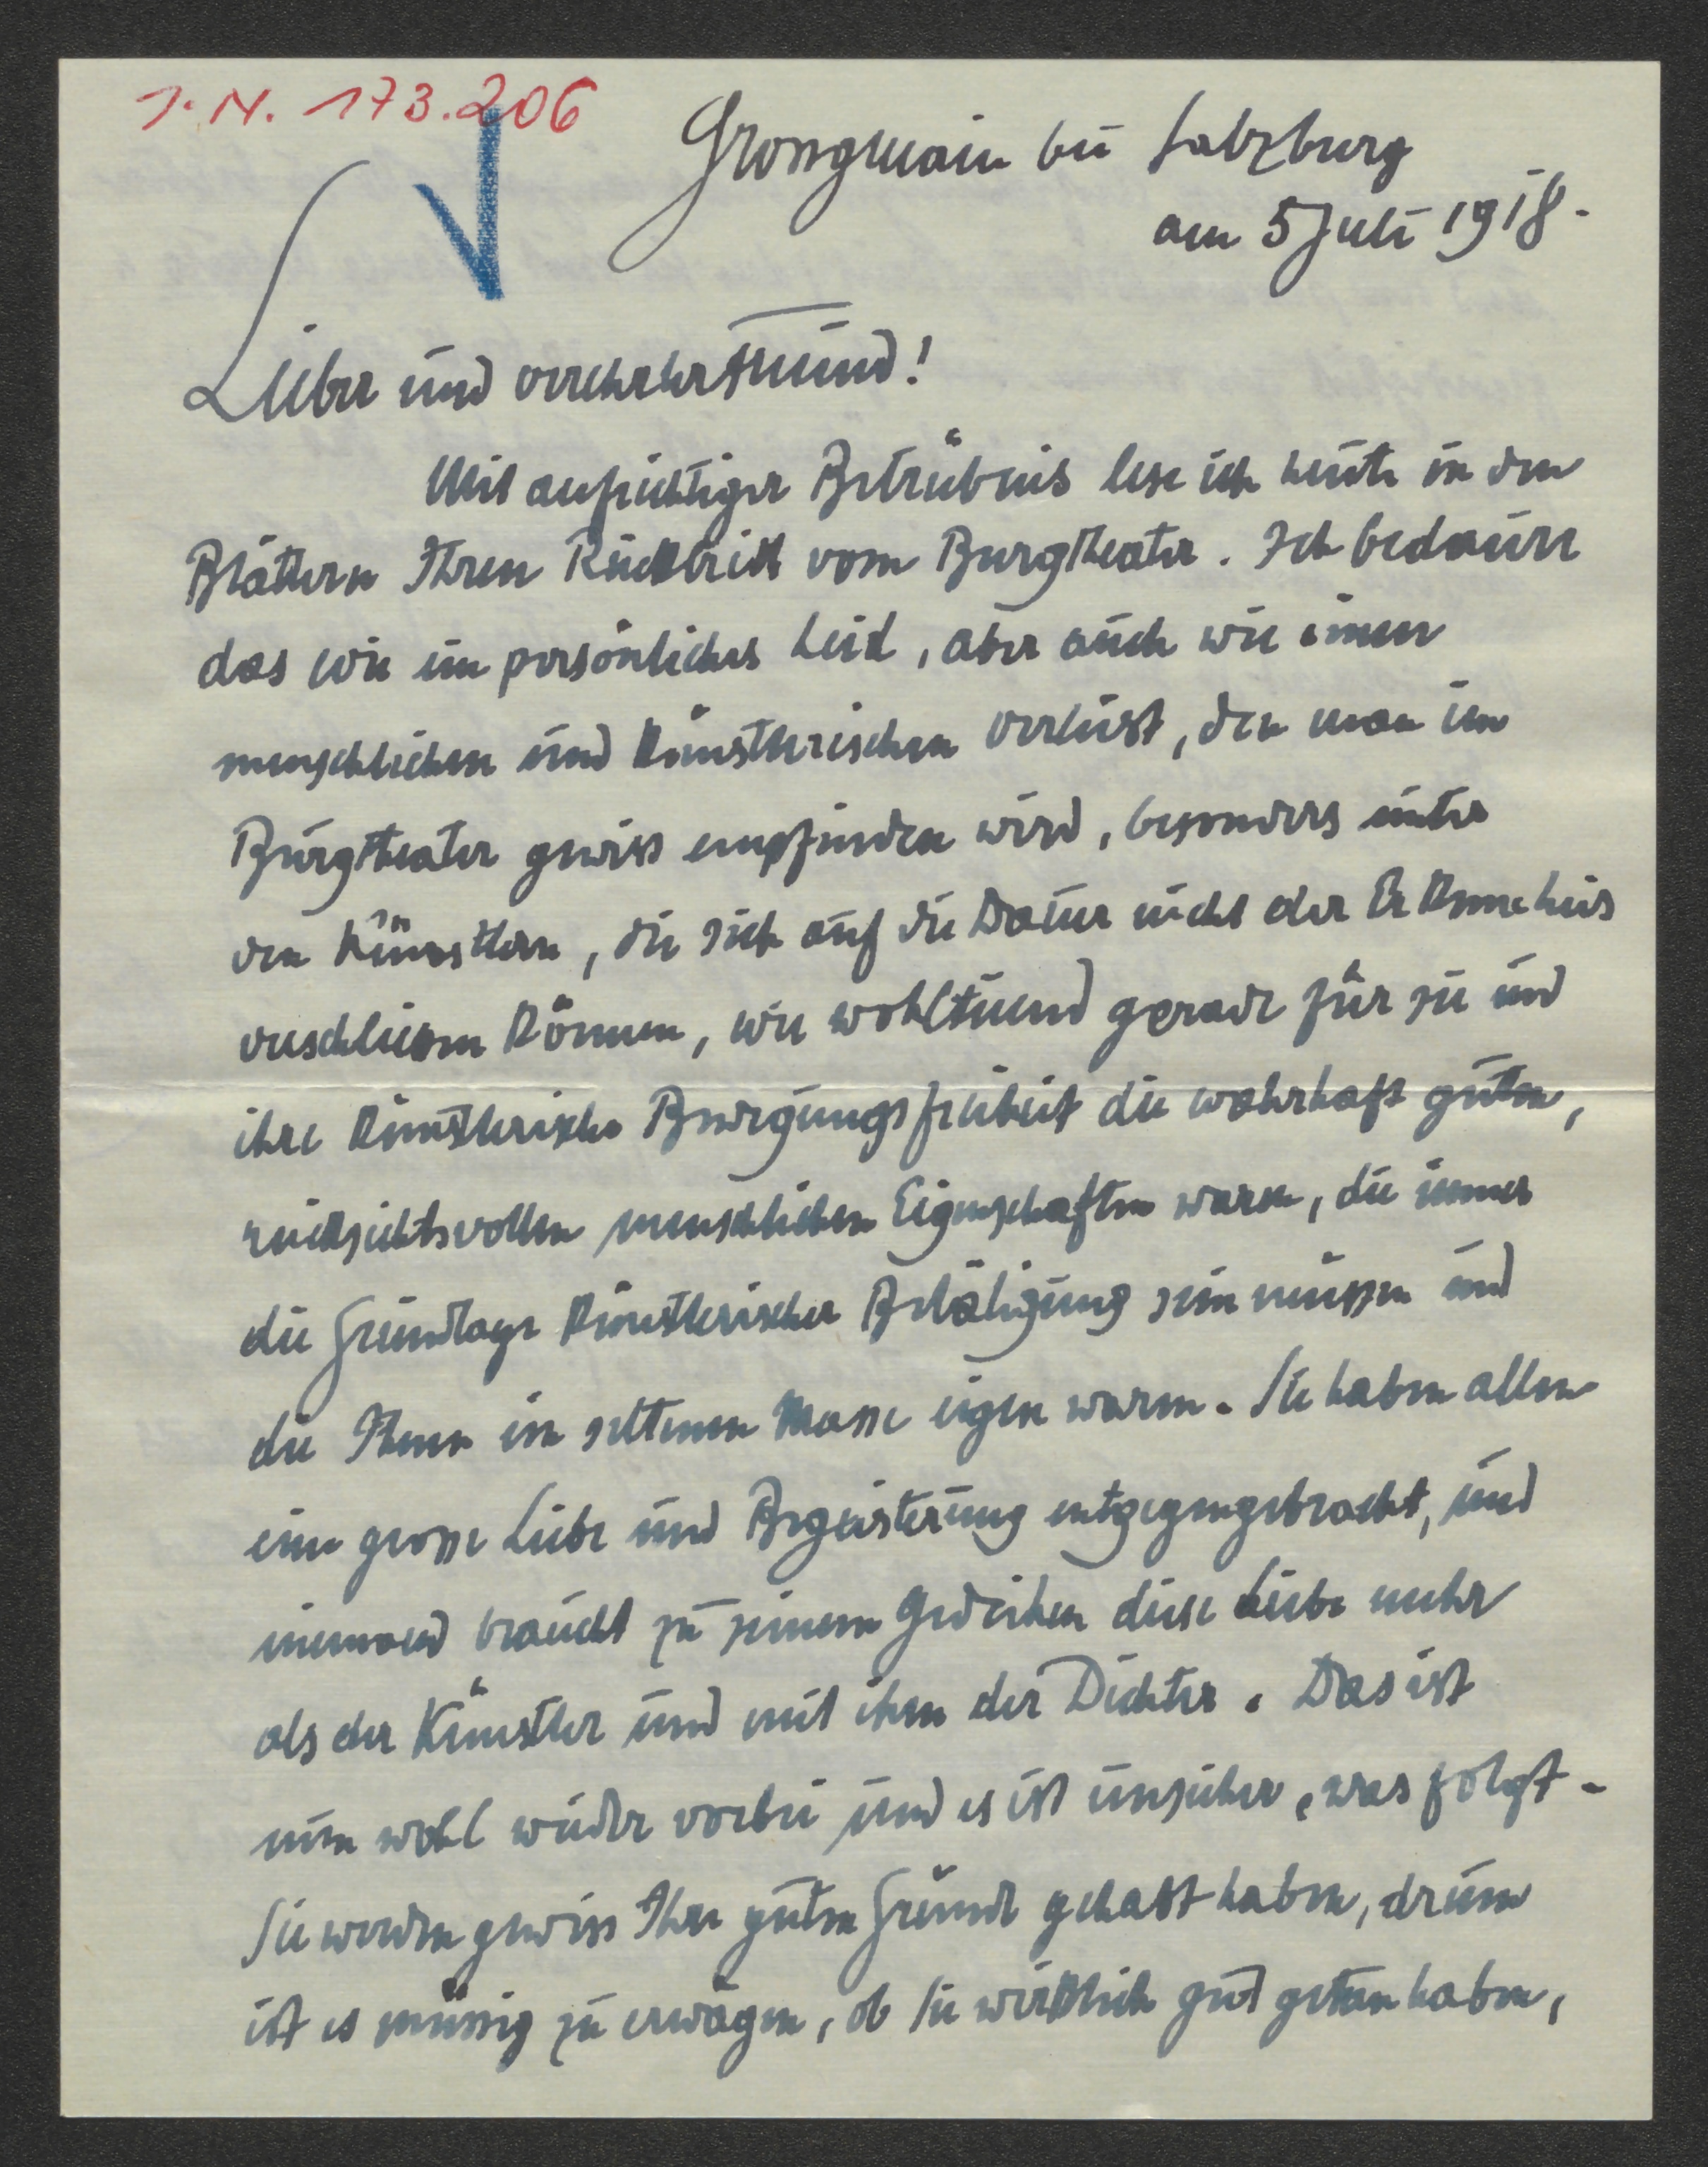 J. N. 173.206
Grossgmain bei Salzburg
am 5 Juli 1918.
Lieber und verehrter Freund!
Mit aufrichtiger Betrübnis lese ich heute in den
Blättern Ihren Rücktritt vom Burgtheater. Ich bedaure
das wie ein persönliches Leid, aber auch wie einen
menschlichen und künstlerischen Verlust, den man im
Burgtheater gewiss empfinden wird, besonders unter
den Künstlern, die sich auf die Dauer nicht der Erkenntnis
verschliessen können, wie wohltuend gerade für sie und
ihre künstlerische Bewegungsfreiheit die wahrhaft guten,
rücksichtsvollen menschlichen Eigenschaften waren, die immer
die Grundlage künstlerischer Betätigung sein müssen und
die Ihnen in seltenem Masse eigen waren. Sie haben allen
eine grosse Liebe und Begeisterung entgegengebracht, und
niemand braucht zu seinem Gedeihen diese Liebe mehr
als der Künstler und mit ihm der Dichter. Das ist
nun wohl wieder vorbei und es ist unsicher, was folgt.
Sie werden gewiss Ihre guten Gründe gehabt haben, drum
ist es müssig zu erwägen, ob Sie wirklich gut getan haben,